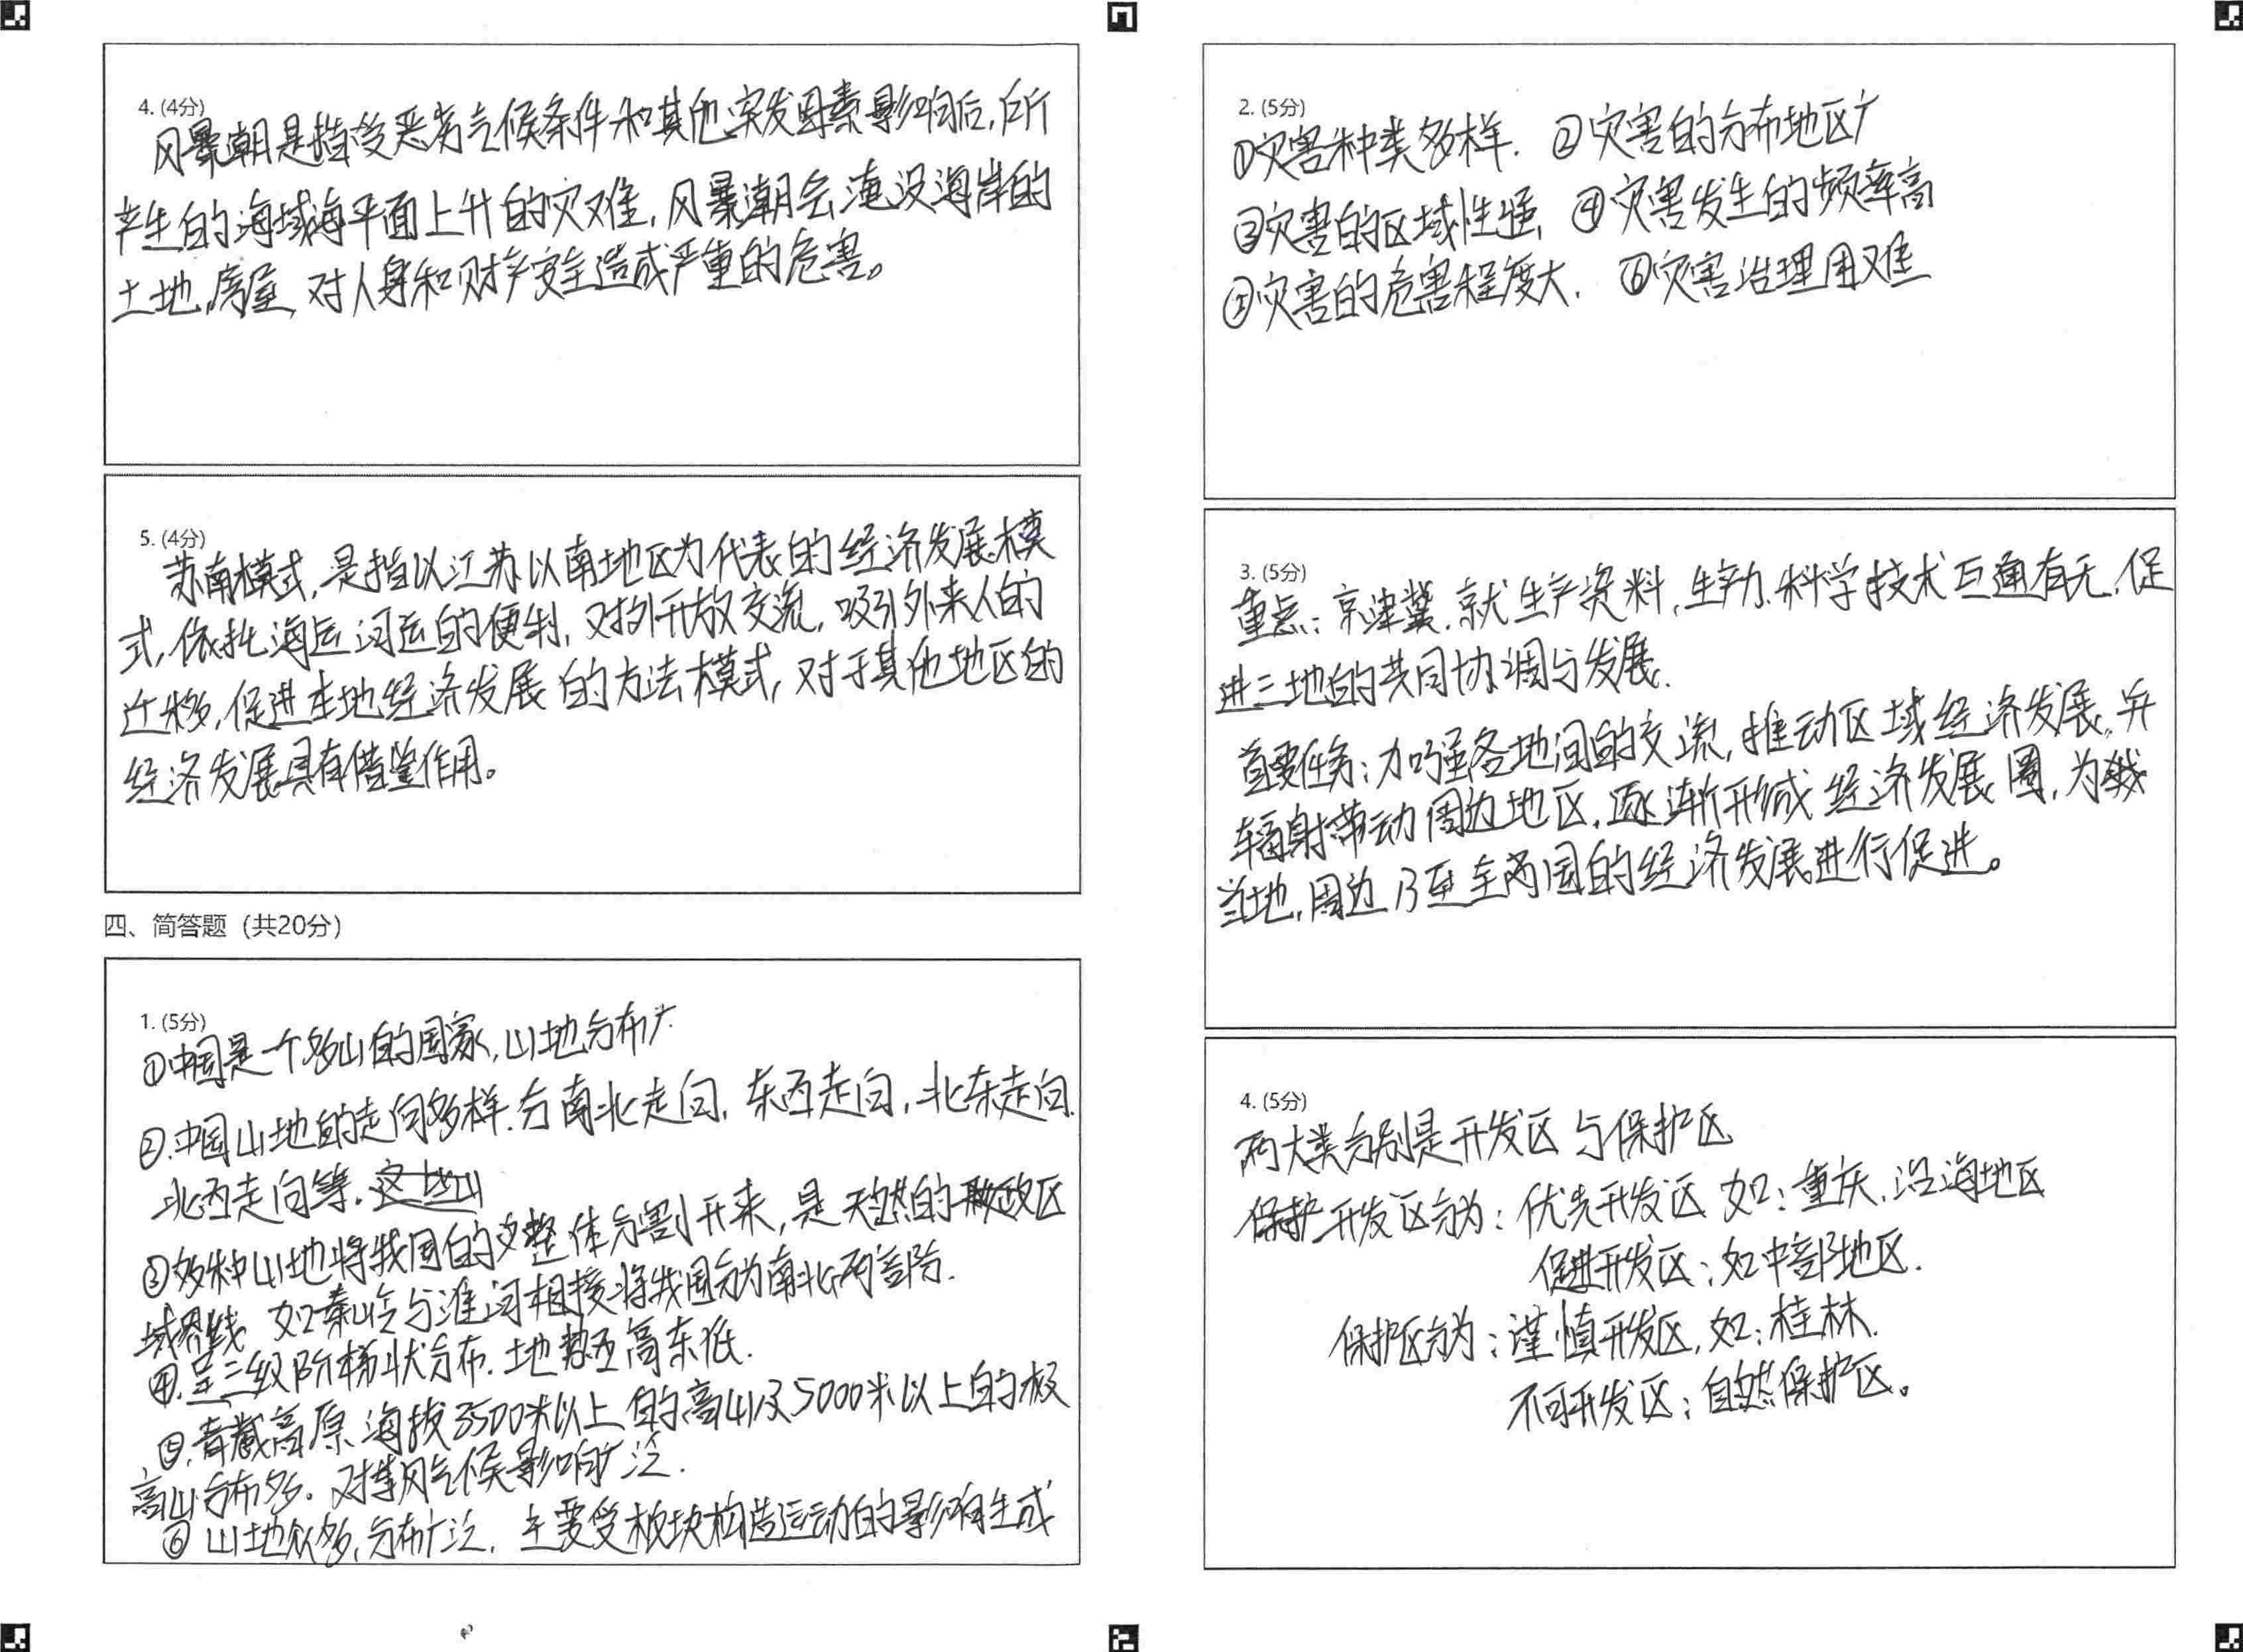 4. (4分)
风暴潮是指受恶劣气候条件和其他突发因素影响后,所
产生的海域海平面上升的灾难,风暴潮会淹没海岸的
土地,房屋,对人身和财产安全造成严重的危害。
5. (4分)
苏南模式,是指以江苏以南地区为代表的经济发展模
式,依托海运河运的便利,对外开放交流,吸引外来人的
迁移,促进本地经济发展的方法模式,对于其他地区的
经济发展具有借鉴作用。
四、简答题(共20分)
1. (5分)
①中国是一个多山的国家,山地分布广.
②.中国山地的走向多样.分南北走向,东西走向,北东走向.
北西走向等.
③多种山地将我国的整体分割开来,是天然的政区
域界线 如秦岭与淮河相接将我国分为南北两部.
④.呈三级阶梯状分布.地势西高东低.
⑤.青藏高原 海拔3500米以上的高山及5000米以上的极
高山分布多。对季风气候影响广泛.
⑥山地众多,分布广泛.主要受板块构造运动的影响生成
2. (5分)
①灾害种类多样. ②灾害的分布地区广
③灾害的区域性强, ④灾害发生的频率高
⑤灾害的危害程度大. ⑥灾害治理困难
3. (5分)
重点:京津冀.就生产资料,生产力.科学技术互通有无,促
进三地的共同协调与发展.
首要任务:加强各地间的交流,推动区域经济发展,并
辐射带动周边地区,逐渐形成经济发展圈,为
当地,周边乃至全国的经济发展进行促进。
4. (5分)
两大类分别是开发区与保护区
开发区分为:优先开发区 如:重庆,沿海地区
促进开发区:如中部地区.
保护区分为:谨慎开发区,如:桂林.
不可开发区:自然保护区。